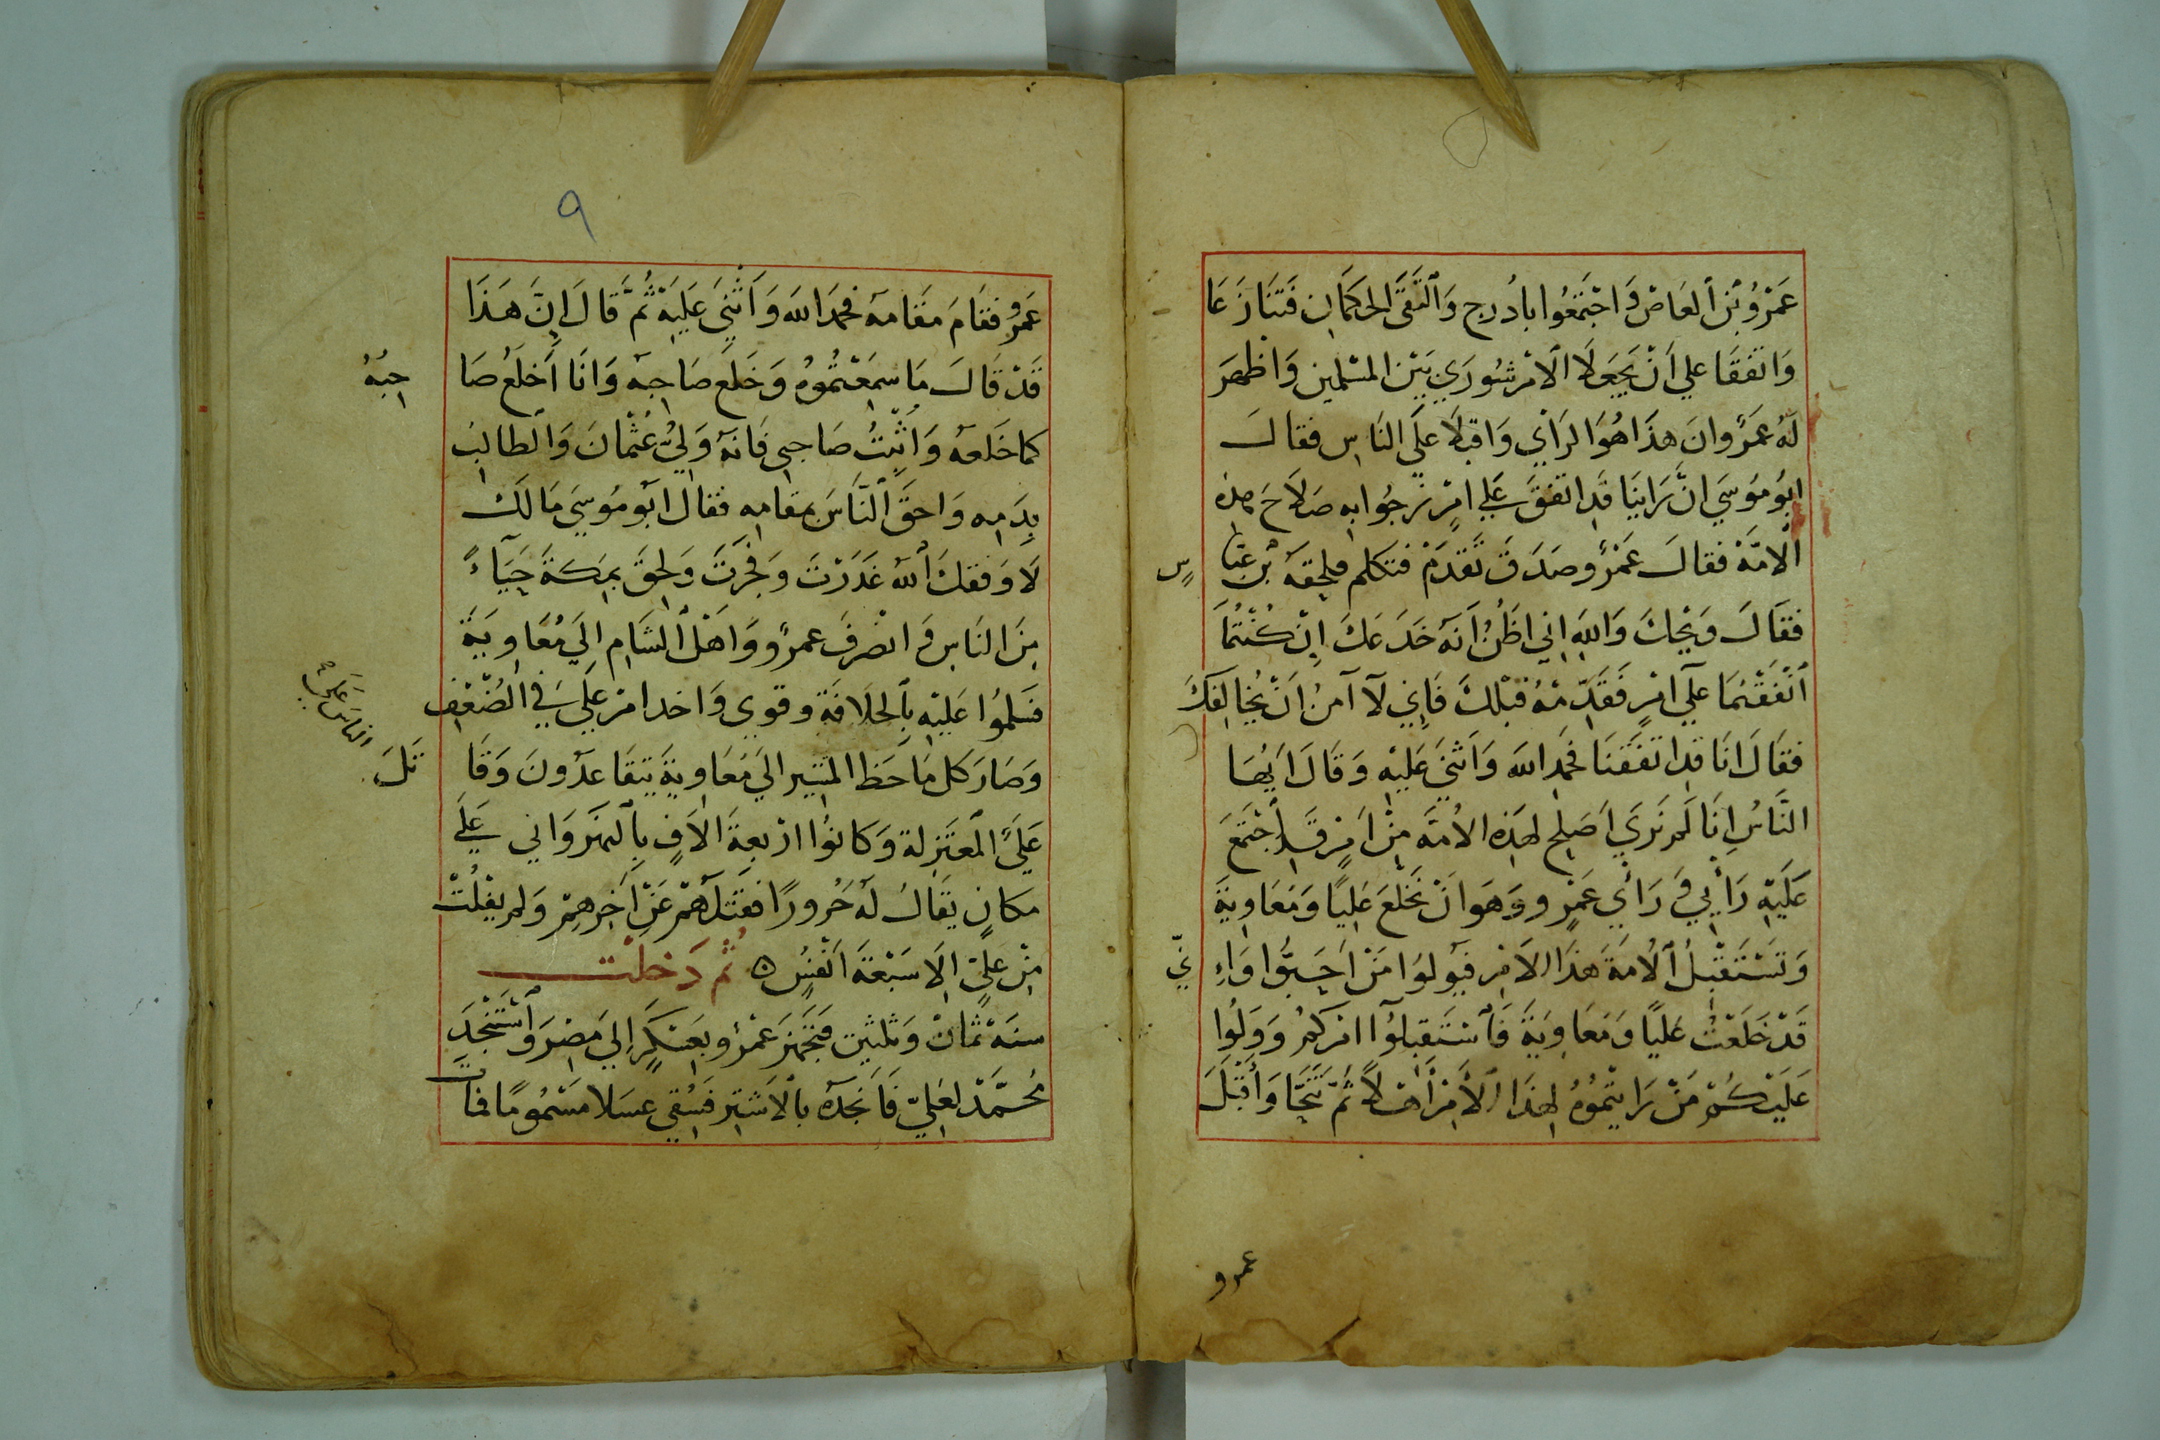 عَمْرُو بْنُ العَاصْ وَاجْتَمَعُوا بادُرج وَالتَقَى الحكمَانِ فَتنَازَعَا
وَاتفَقَا علي اَنْ يَجعَلَا الاَمْر شُورَي بَيْن المسْلمين وَاظْهرَ
لهُ عَمرٌو انَ هذَا هُوَ الرَاْي وَاقبَلَا علَي النَاسِ فقالَ
ابُو مُوسَي انَّ رَاينَا قدِ اتفَقَ عَلي امْرٍ نرجُوا بهِ صَلَاحَ هذِه
الامّة فقالَ عَمْرٌو صَدَقَ تَقدَمْ فتكلم فلحِقهُ بْن عبّا سٍ
فقَالَ وَيْحكَ وَاللهِ اِني اظنُ اَنهُ خَدَعَكَ اِنْ كُنْتُمَا
اتفَقْتُمَا علَي امْرٍ فَقَدِّمْهُ قبْلكَ فَاِنِي لَا آمنُ اَنْ يُخَالِفَكَ
فقَالَ انَا قدِ اتفَقنَا فحَمِدَ اللهَ وَاَثنَي عَليْهِ وَقَالَ اَيُّهَا
النَّاسُ اِنَا لَم نَرَي اَصْلح لهَذِه الاُمّة مِنْ اَمْرٍ قدِ اجْتَمَعَ
عَلَيْهِ رَاْيِي وَ رَاْي عَمْرٍو وَهوَ اَنْ نَخْلعَ عَلِيًا وَمُعَاوِيَةَ
وَتَسْتَقْبِلُ الاُمة هَذَا الاَمْر فيُولوُا مَنْ اَحَبُّوا وَاِ نِّي
قَدْ خَلَعْتُ عَليًا وَمُعَاوِيَةَ فَاسْتَقبِلُوا امْركمُ وَوَلُوا
عَلَيْكُمْ مَنْ رَايْتمُوهُ لهذَا الاَمْر اَهْلًا ثُمّ تَنَحَّا وَاَقْبَلَ
عمرو
٩
عَمرٌو فقَامَ مقَامهُ فحَمِدَ اللهَ وَاَثْنَي عَليْهِ ثُمَّ قَالَ اِنَّ هَذَا
قَدْ قَالَ مَا سمِعْتمُوهُ وَخَلعَ صَاحِبهُ وَانَا اَخلَعُ صَا حِبَهُ
كما خَلعهُ وَاثْبِتُ صَاحِبِي فَانهُ وَلِيُّ عُثْمانَ وَالطَالِبُ
بِدَمِهِ وَاحقَّ النَّاسِ بمقامِهِ فقال ابُو مُوسَي مَا لَكَ
لَا وَفقكَ اللهُ غدَرْتَ وَفجَرْتَ وَلحِقَ بمَكةَ حَيَآءً
مِنَ النَاسِ وَ انصَرفَ عمرٌو وَاَهْل الشَامِ اِلَي مُعَاوِيَةَ
فسَلمُوا عَليْهِ بِالخِلَافَةِ وقوي وَاخد امْر علَيّ في الضُعْفِ
وَصَارَ كل مَا حَظ المسير الي مُعَاوِيةَ يتقَاعدُونَ وَقَا تَلَ
عَلَيّ المعْتَزِلة وَكانوُا ارْبعةَ الاَفٍ بِالنهرَوَاني عَلَي
مكانٍ يقَالُ لَهُ حُرورًا فقَتَلهُمْ عَنْ اَخِرهِمْ وَلم يفْلُتْ
مِنْ عَليّ اِلَا سَبْعَةَ اَنْفسٍ ثُم دَخلت
سنة ثمانْ وَثلثين فتَجَهزَ عَمْرٌو بعَسْكَرٍ اِلي مَصْرَ وَاسْتَنْجَدَ
مُحَمّدْ لعَليّ فَاَنجَدَهُ بالاَشترِ فَسُقي عسَلا مَسْمُومًا فمَاتَ